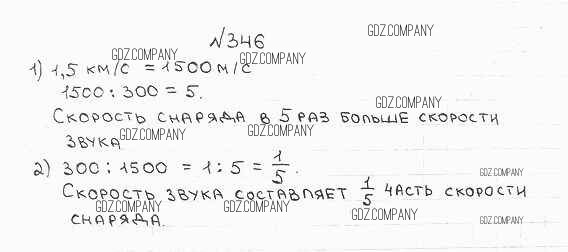 №346
GDZ.COMPANY
GDZ.COMPANY GDZ.COMPANY
1) 1,5 км/с = 1500 м/с
1500 : 300 = 5.
GDZ.COMPANY
Скорость снаряда в 5 раз больше скорости
GDZ.COMPANY GDZ.COMPANY
звука
2) 300 : 1500 = 1 : 5 = 1/5.
GDZ.COMPANY
Скорость звука составляет 1/5 часть скорости
GDZ.COMPANY GDZ.COMPANY GDZ.COMPANY
снаряда.
GDZ.COMPANY